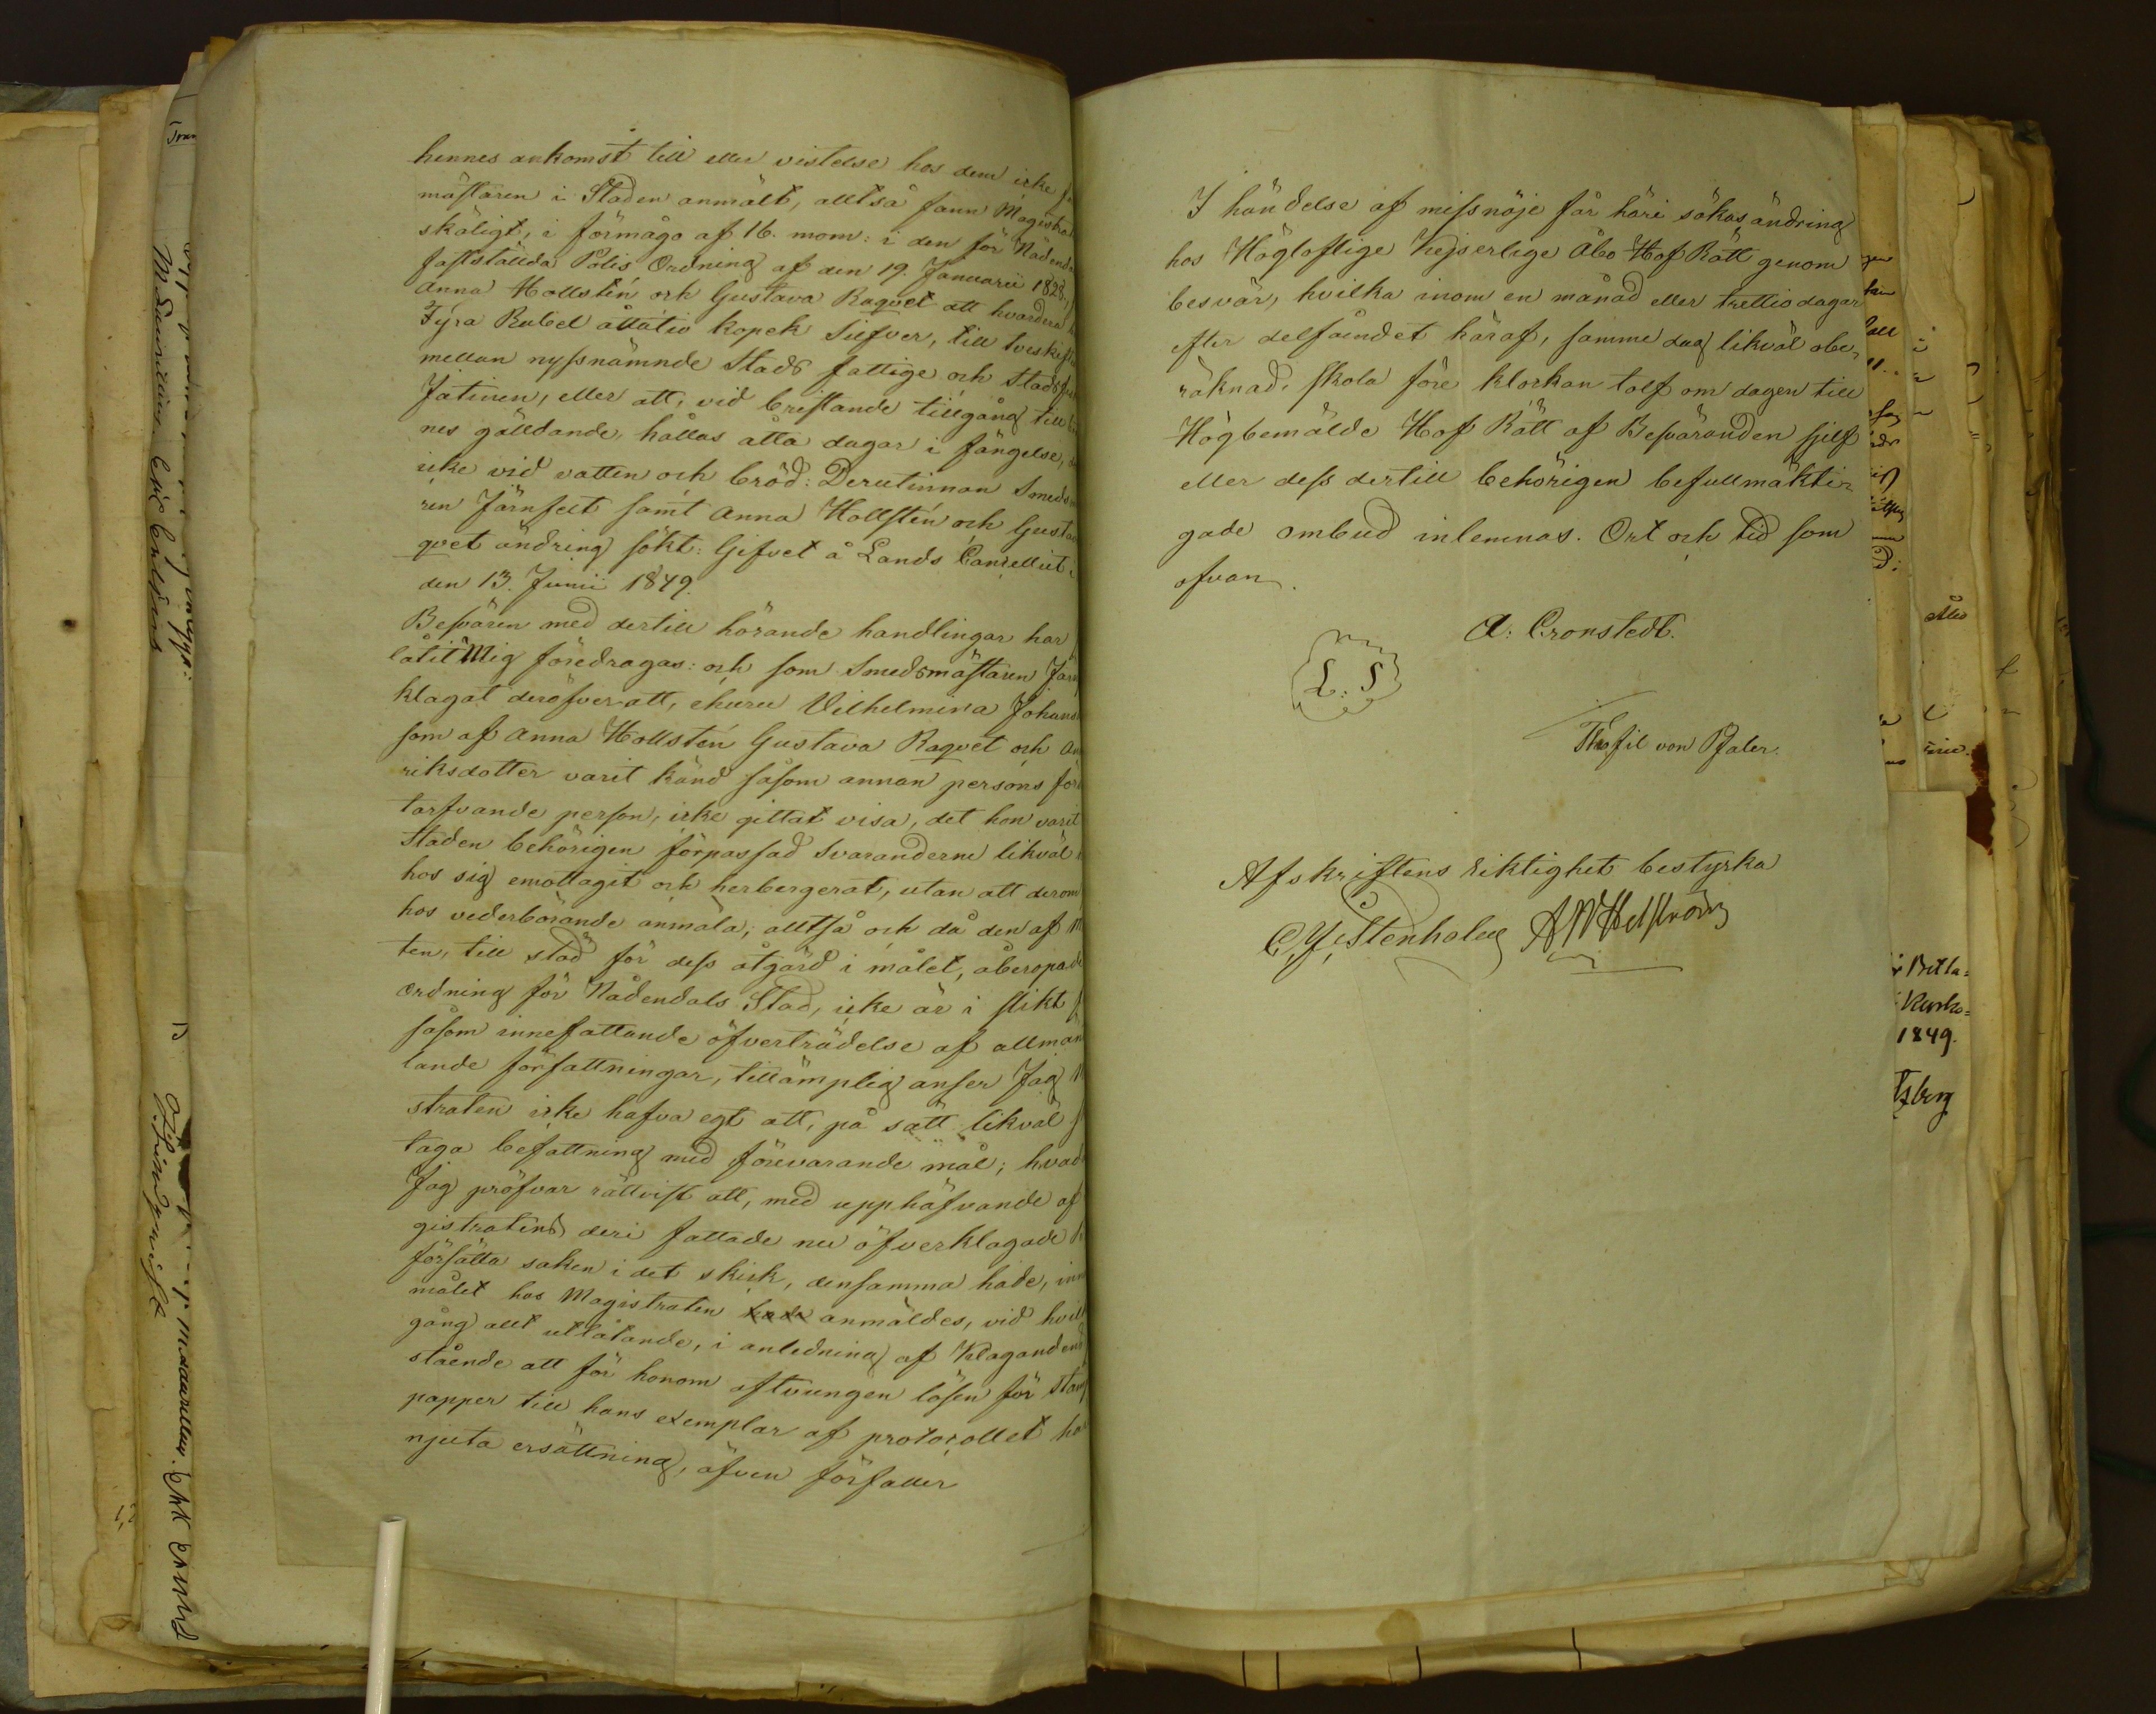 hennes ankomst till eller vistelse hos dem icke
mästaren i Staden anmält, alltså fann Magistra
skäligt, i förmågo af 16. mom: i den för Nådenda
fastställda Polis Ordning af den 19. Januarii 1828,
Anna Hollstén och Gustava Raqvet att hvardera
Fyra Rubel åttatio kopek Silfver, till tveskifte
mellan nyssnämnde Stads fattige och Stads
Jatinen, eller att, vid bristande tillgång till
nes gälldande, hållas åtta dagar i fängelse,
icke vid vatten och bröd: Derutinnan Smeds
ren Järnfelt samt Anna Hollstén och Gusta
qvet ändring sökt: Gifvet å Lands Cancelliet i
den 13. Junii 1849.
Besvären med dertill hörande handlingar har
låtit Mig föredragas: och som Smedsmästaren Järn
klagat deröfver att, ehuru Vilhelmina Johans
som af Anna Hollstén Gustava Raqvet och An
riksdotter varit känd såsom annan persons för
tarfvande person, icke gittat visa, det hon varit
Staden behörigen förpassad Svaranderne likväl
hos sig emottagit och herbergerat, utan att derom
hos vederbörande anmäla; alltså och då den af M
ten, till stöd för dess åtgärd i målet, åberopade
Ordning för Nådendals Stad, icke är i slikt
såsom innefattande öfverträdelse af allmän
lande författningar, tillämplig anser Jag M
straten icke hafva egt att, på sätt likväl
taga befattning med förevarande mål; hvad
Jag pröfvar rättvist att, med upphäfvande af
gistratens deri fattade nu öfverklagade
försätta saken i det skick, densamma hade, inn
målet hos Magistraten hade anmäldes, vid hvil
gång allt utlåtande, i anledning af Klagandens
stående att för honom aftvungen lösen för Stam
papper till hans exemplar af protocollet
njuta ersättning, äfven förfaller
I händelse af missnöje får häri sökas ändring
hos Högloflige Kejserlige Åbo Hof Rätt genom
besvär, hvilka inom en månad eller trettio dagar
efter delfåendet häraf, samme dag likväl obe-
räknad, skola före klockan tolf om dagen till
Högbemälde Hof Rätt af Besväranden sjelf
eller dess dertill behörigen befullmäkti-
gade ombud inlemnas. Ort och tid som
ofvan.
A: Cronstedt.
L: S
Thefil von Pfaler.
Afskriftens riktighet bestyrka
Stenholm A W Hellström
1849.